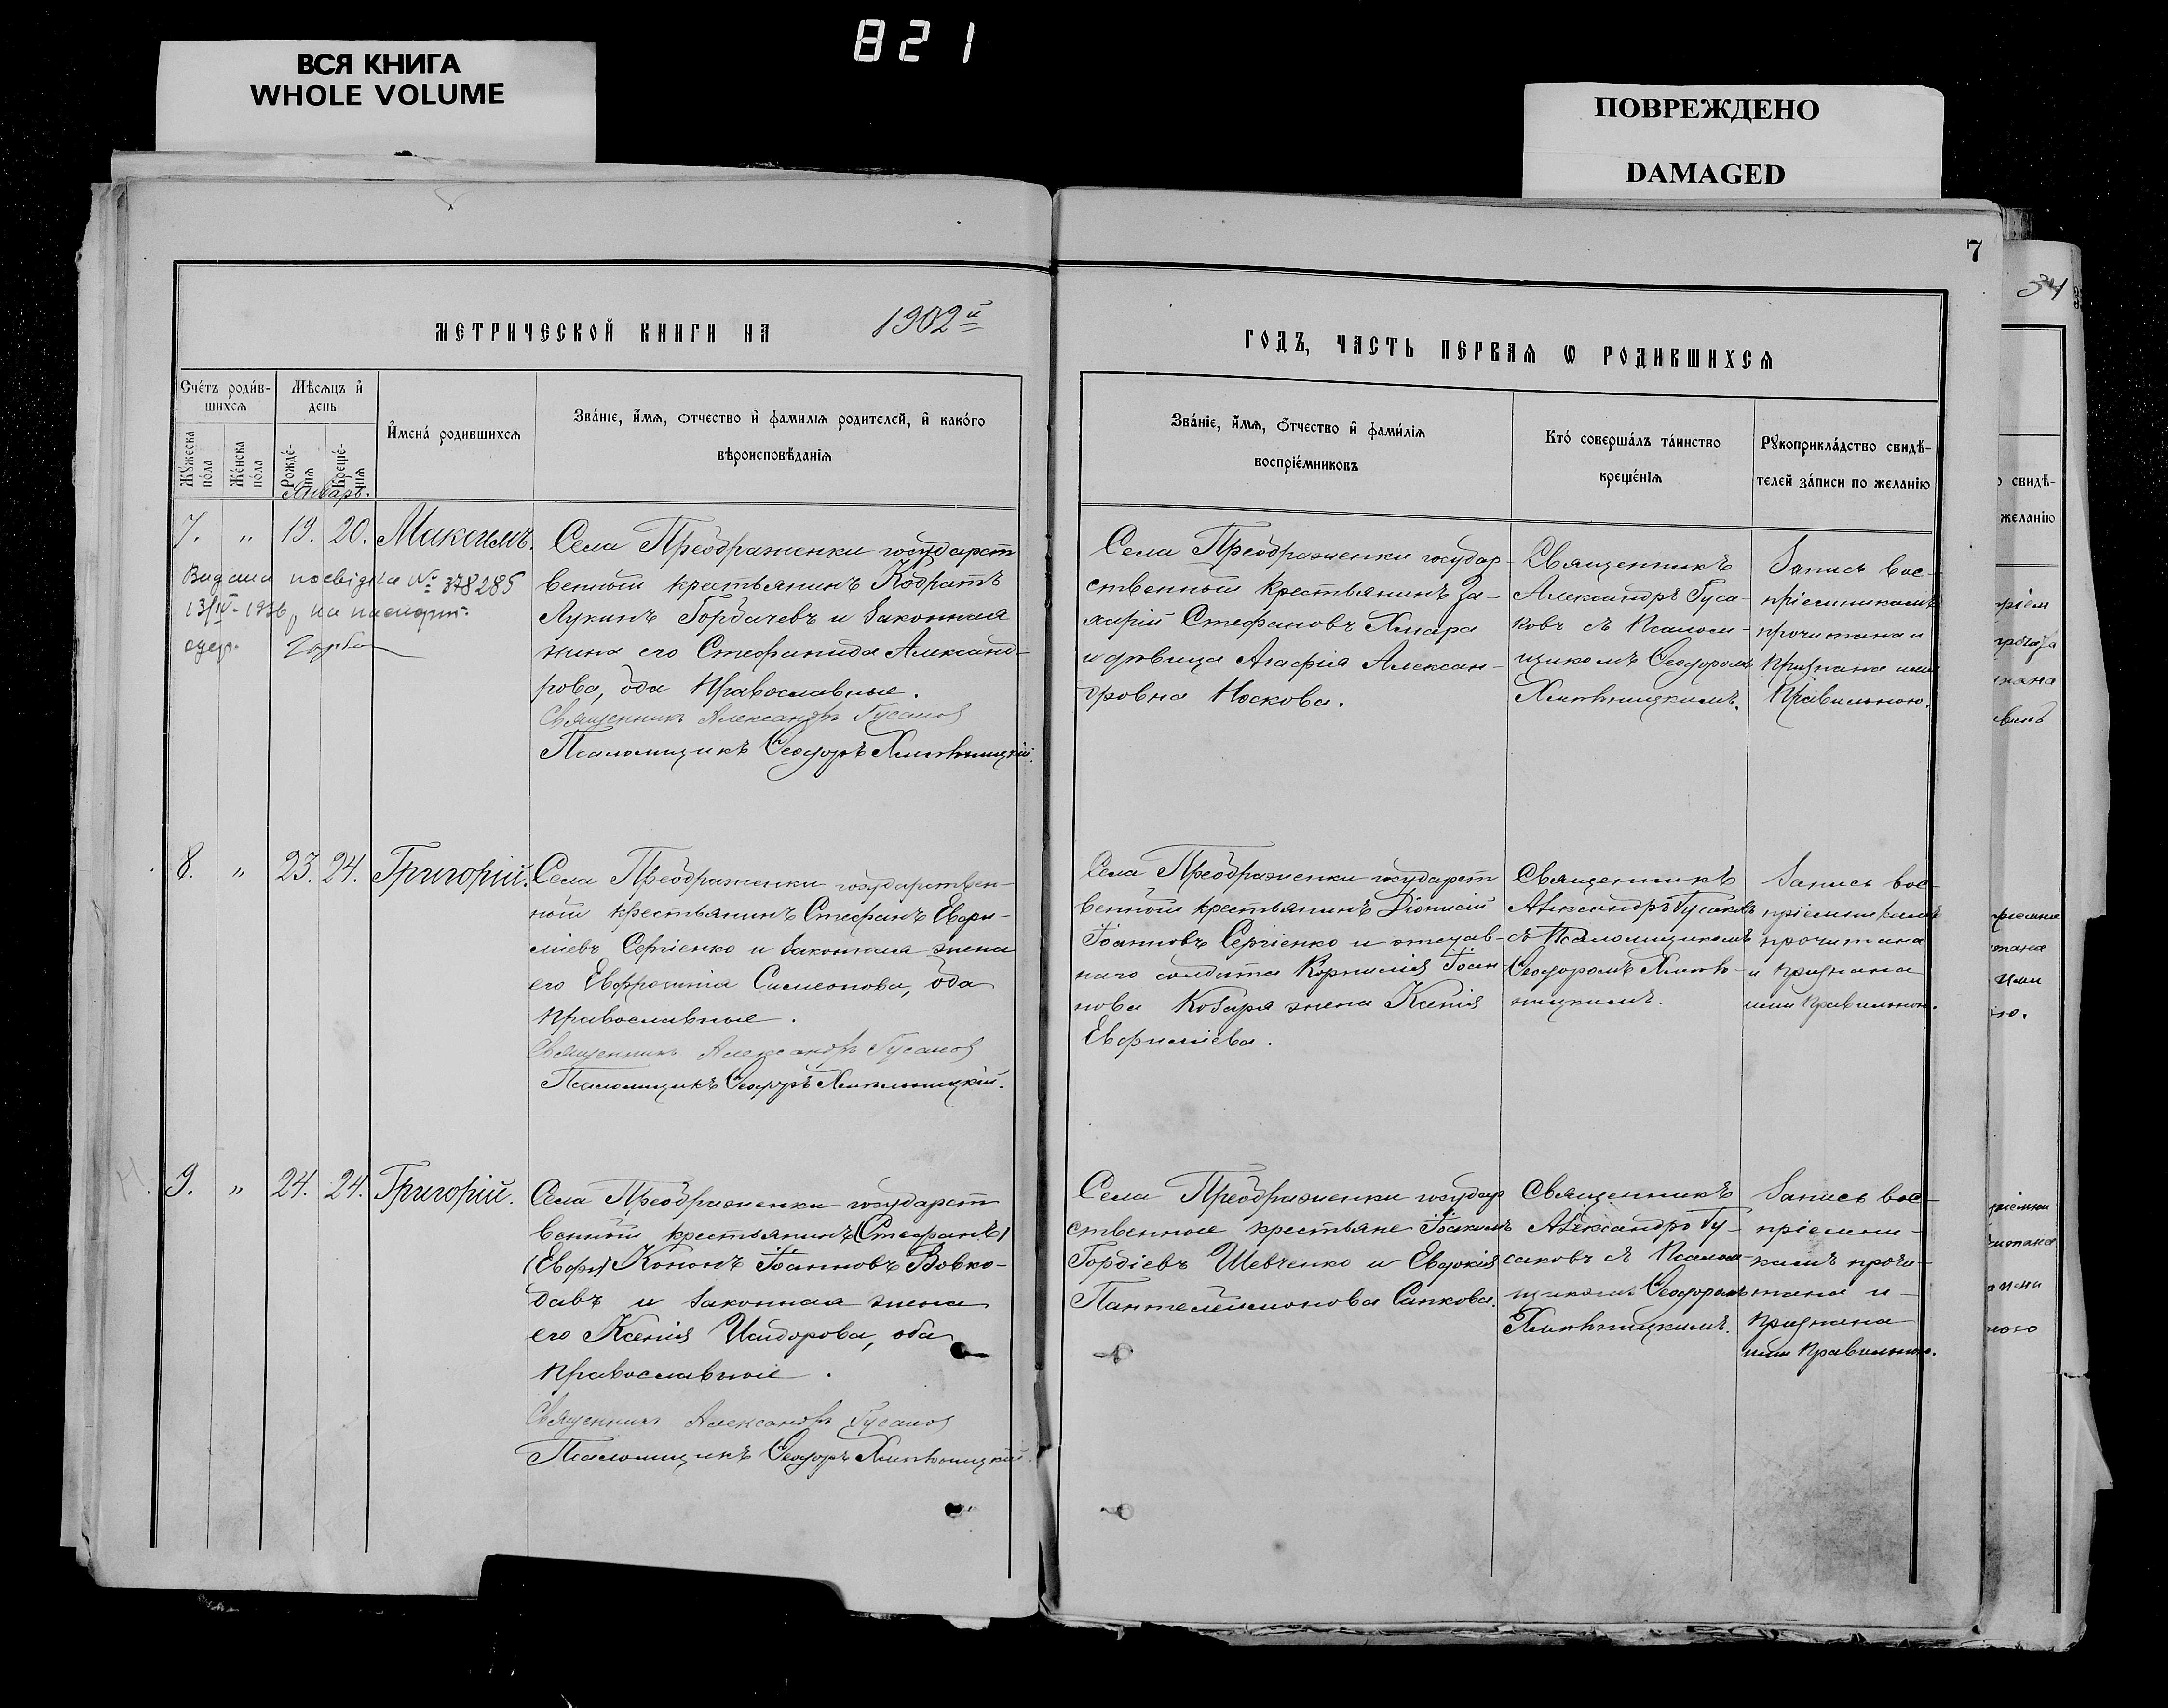 821
ВСЯ КНИГА
WHOLE VOLUME
ПОВРЕЖДЕНО
DAMAGED
7
34
МЕТРИЧЕСКОЙ КНИГИ НА 1902й
ГОДЪ, ЧАСТЬ ПЕРВАЯ Ѡ РОДИВШИХСЯ
Счетъ родив-
шихся
Мѣсяцъ и
день
Мужеска
пола
Женска
пола
Рожде-
нія
Креще-
нія
Имена родившихся
Званіе, имя, отчество и фамилія родителей, и какого
вѣроисповѣданія
Званіе, имя, отчество и фамилія
воспріемниковъ
Кто совершалъ таинство
крещенія
Рукоприкладство свидѣ-
телей записи по желанію
Январь.
7. „ 19. 20. Максимъ.
Видана посвідка № 378285
13/IV-1936, на паспорт.
Села Преображенки государст
венный крестьянинъ Кодратъ
Лукинъ Горбачевъ и законная
жена его Стефанида Александ-
рова, оба православные.
Священникъ Александръ Гусаковъ
Псаломщикъ Ѳеодоръ Хмѣльницкій.
Села Преображенки государ-
ственный крестьянинъ За-
харій Стефановъ Хмара
и дѣвица Агафія Алексан-
дровна Носкова.
Священникъ
Александръ Гуса-
ковъ съ псалом-
щикомъ Ѳеодоромъ
Хмѣльницкимъ.
Запись вос-
пріемникамъ
прочитана и
признана ими
правильною.
8. „ 23. 24. Григорій.
Села Преображенки государствен-
ный крестьянинъ Стефанъ Евфи-
міевъ Сергіенко и законная жена
его Евфросинія Симеонова, оба
православные.
Священникъ Александръ Гусаковъ
Псаломщикъ Ѳеодоръ Хмѣльницкій.
Села Преображенки государст
венный крестьянинъ Діонисій
Іоанновъ Сергіенко и отстав-
наго солдата Корнилія Іоан-
нова Кобаря жена Ксенія
Евфиміева.
Священникъ
Александръ Гусаковъ
съ псаломщикомъ
Ѳеодоромъ Хмѣль-
ницкимъ.
Запись вос-
пріемникамъ
прочитана
и признана
ими правильною.
9. „ 24. 24. Григорій.
Села Преображенки государст
венный крестьянинъ (Стефанъ)
(Евфи) Кононъ Іоанновъ Вовко-
давъ и законная жена
его Ксенія Исидорова, оба
православные.
Священникъ Александръ Гусаковъ
Псаломщикъ Ѳеодоръ Хмѣльницкій.
Села Преображенки государ
ственные крестьяне Іоакимъ
Гордіевъ Шевченко и Евдокія
Пантелеимонова Сапкова.
Священникъ
Александръ Гу-
саковъ съ псалом-
щикомъ Ѳеодоромъ
Хмѣльницкимъ.
Запись вос-
пріемни-
камъ прочи-
тана и
признана
ими правильною.